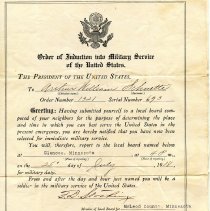 Order of Induction into Military Service
of the United States.
THE PRESIDENT OF THE UNITED STATES,
To Arthur William
Order Number 1321 Serial Number 693
Greeting: Having submitted yourself to a local board composed
of your neighbors for the purpose of determining the place
and time in which you can best serve the United States in the
present emergency, you are hereby notified that you have now been
selected for immediate military service.
You will, therefore, report to the local board named below
at Glencoe, Minnesota at M.,
on the day of July, 19
for military duty.
From and after the day and hour just named you will be a
soldier in the military service of the United States.
Member of Local Board for
McLeod County, Minnesota